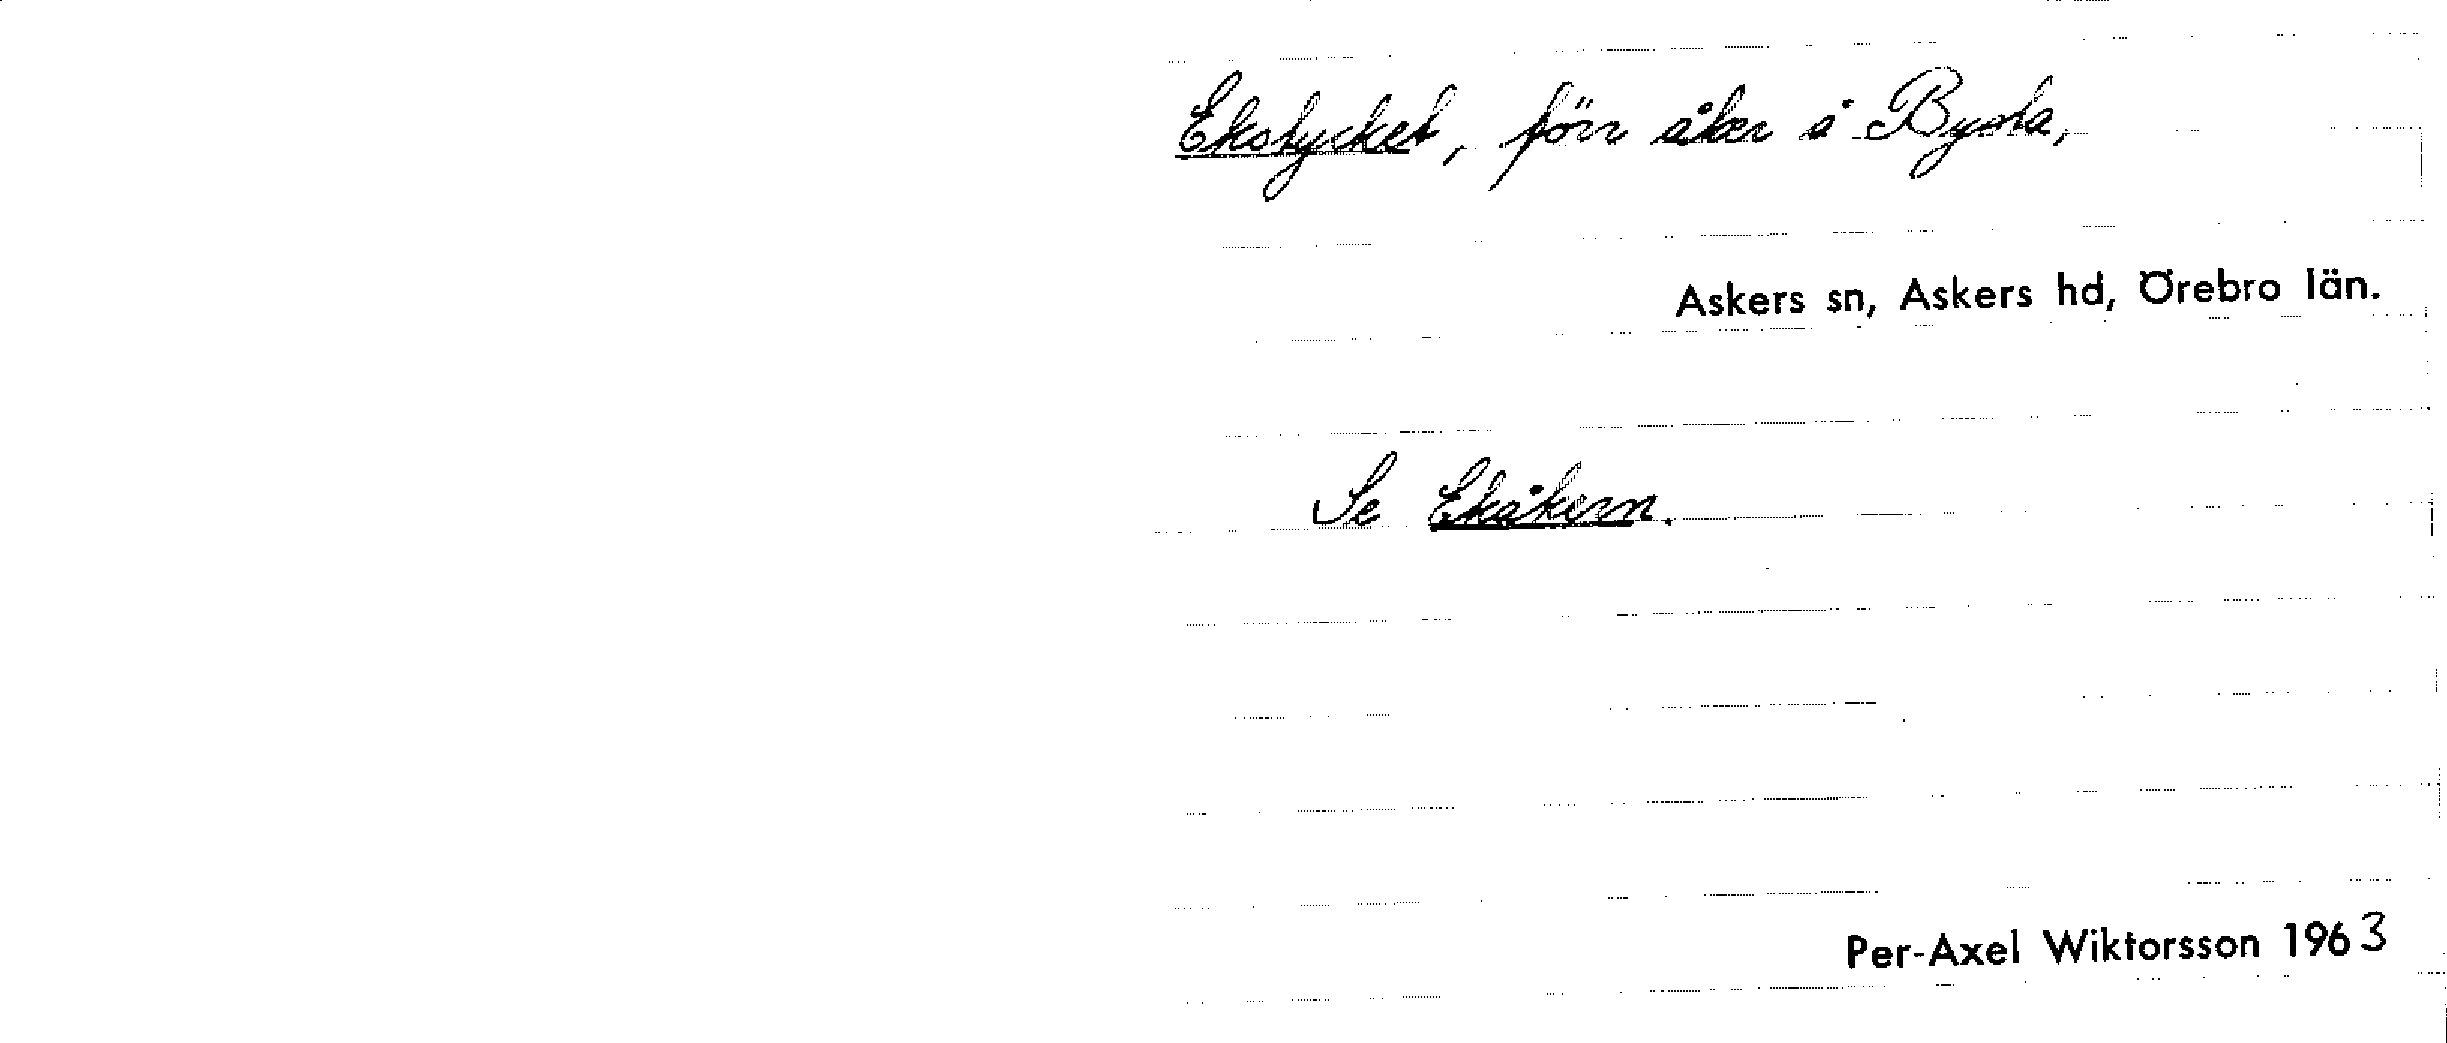 Ekstycket, förr åker å Bysta,
Askers sn, Askers hd, Örebro län.
Se Ekåkern.
Per-Axel Wiktorsson 1963